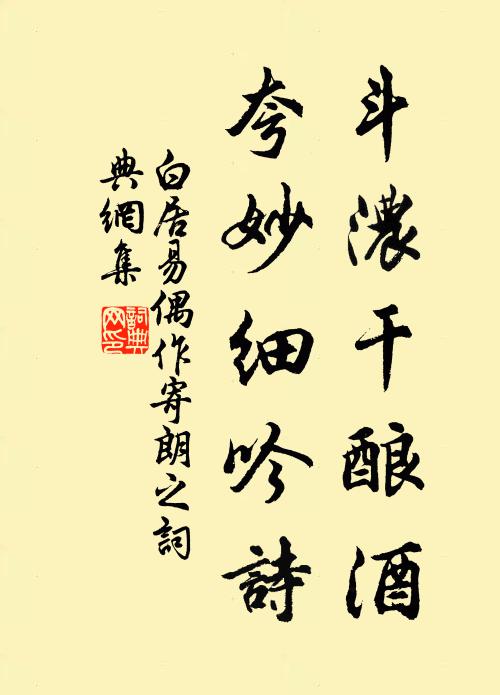 斗濃干酿酒
夸妙细吟詩
白居易偶作寄朗之詞
典網集
詞典
网印